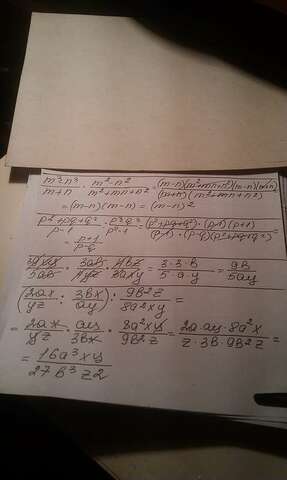 (m³-n³)/(m+n) · (m²-n²)/(m²+mn+n²) = ((m-n)(m²+mn+n²)(m-n)(m+n))/((m+n)(m²+mn+n²)) =
= (m-n)(m-n) = (m-n)²
(p²+pq+q²)/(p-1) : (p³-q³)/(p²-1) = ((p²+pq+q²)·(p-1)(p+1))/((p-1)·(p-q)(p²+pq+q²)) =
= (p+1)/(p-q)
= (3·3·в)/(5·a·y) = 9в/5ay
(2ax/yz : 3вx/ay) : 9в²z/8a²xy =
= 2ax/yz · ay/3вx · 8a²xy/9в²z = (2a·ay·8a²x)/(z·3в·9в²z) =
= 16a³xy/27в³z2